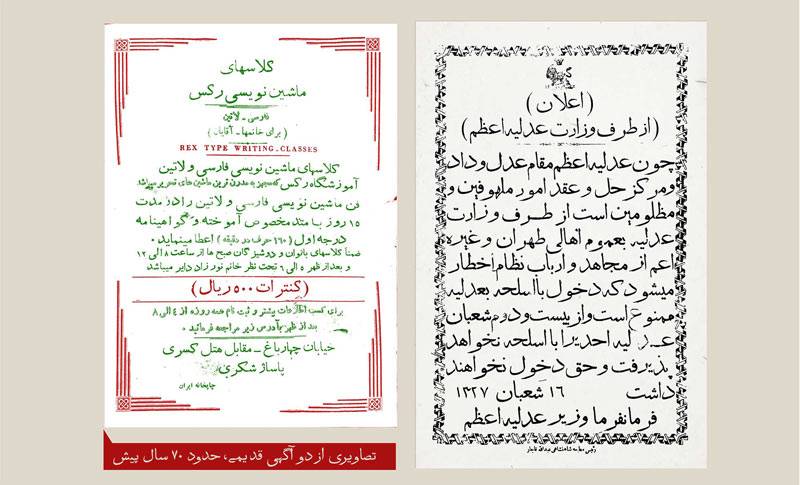 کلاسهای
ماشین نویسی رکس
فارسی - لاتین
(برای خانمها - آقایان)
REX TYPE WRITING-CLASSES
کلاسهای ماشین نویسی فارسی و لاتین
آموزشگاه رکس که مجهز به مدرن ترین ماشین های تحریر میباشد
فن ماشین نویسی فارسی و لاتین را در مدت
۱۵ روز با متد مخصوص آموخته و گواهینامه
درجه اول (۱۶۰ حرف در دقیقه) اعطا مینماید.
ضمناً کلاسهای بانوان و دوشیزگان صبح ها از ساعت ۸ الی ۱۲
و بعد از ظهر ۵ الی ۶ تحت نظر خانم نورزاد دایر میباشد
(کنترات ۵۰۰ ریال)
برای کسب اطلاعات بیشتر و ثبت نام همه روزه از ۴ الی ۸
بعد از ظهر بآدرس زیر مراجعه فرمائید.
خیابان چهارباغ - مقابل هتل کسری
پاساژ شکری
چاپخانه ایران
تصاویری از دو آگهی قدیمی، حدود ۷۰ سال پیش
(اعلان)
(از طرف وزارت عدلیه اعظم)
چون عدلیه اعظم مقام عدل و داد
و مرکز حل و عقد امور ملهوفین و
مظلومین است از طرف وزارت
عدلیه بعموم اهالی طهران و غیره
اعم از مجاهد و ارباب نظام اخطار
میشود که دخول با اسلحه بعدلیه
ممنوع است و از بیست و دوم شعبان
عدلیه احدیرا با اسلحه نخواهد
پذیرفت و حق دخول نخواهند
داشت ۱۶ شعبان ۱۳۲۷
فرمانفرما وزیر عدلیه اعظم